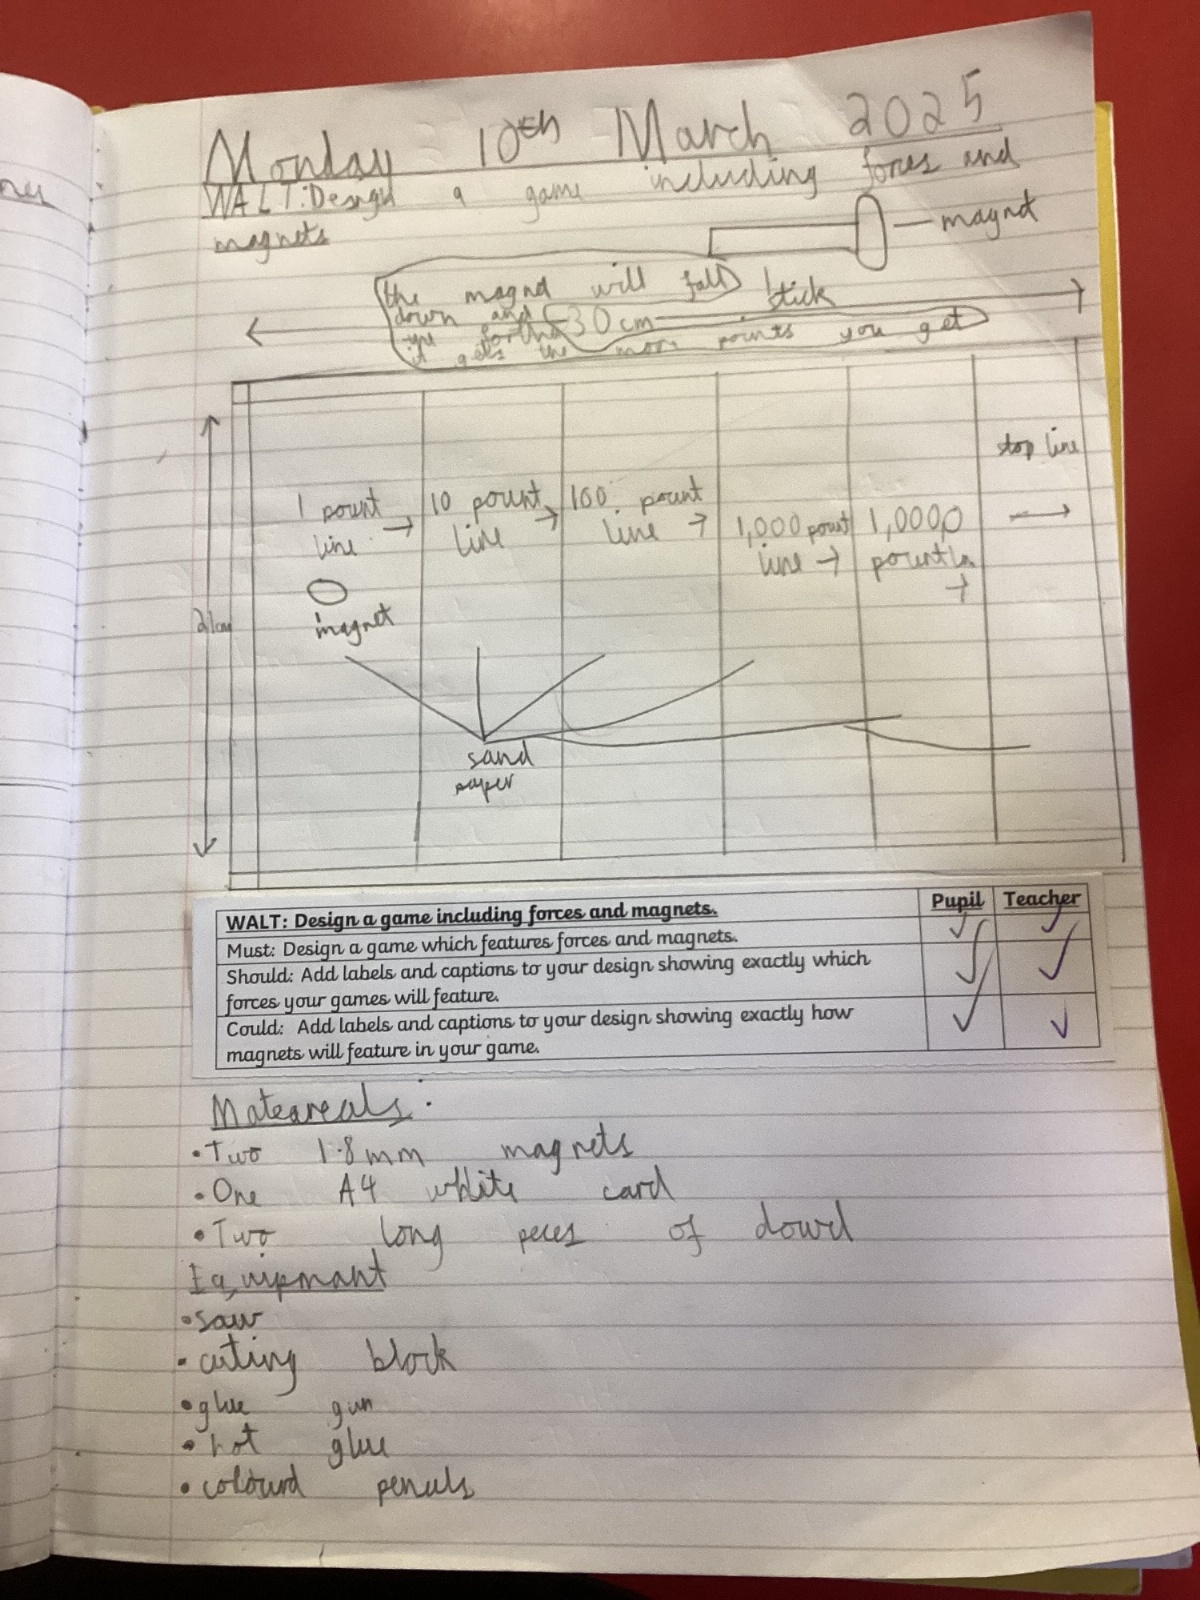 Monday 10th March 2025
WALT: Design a game including forces and
magnets
magnet
the magnet will fall
stick
down and
30cm
the forthe
it gets the more points you get
stop line
1 pount
line
10 pount
line
100 pount
line
1,000 pount
line
1,0000
pount
21cm
magnet
sand
paper
WALT: Design a game including forces and magnets. Pupil Teacher
Must: Design a game which features forces and magnets.
Should: Add labels and captions to your design showing exactly which
forces your games will feature.
Could: Add labels and captions to your design showing exactly how
magnets will feature in your game.
Mateareals:
• Two 1.8mm magnets
• One A4 white card
• Two long peces of dowd
Equipmant
• saw
• cuting block
• glue gun
• hot glue
• colourd pencils